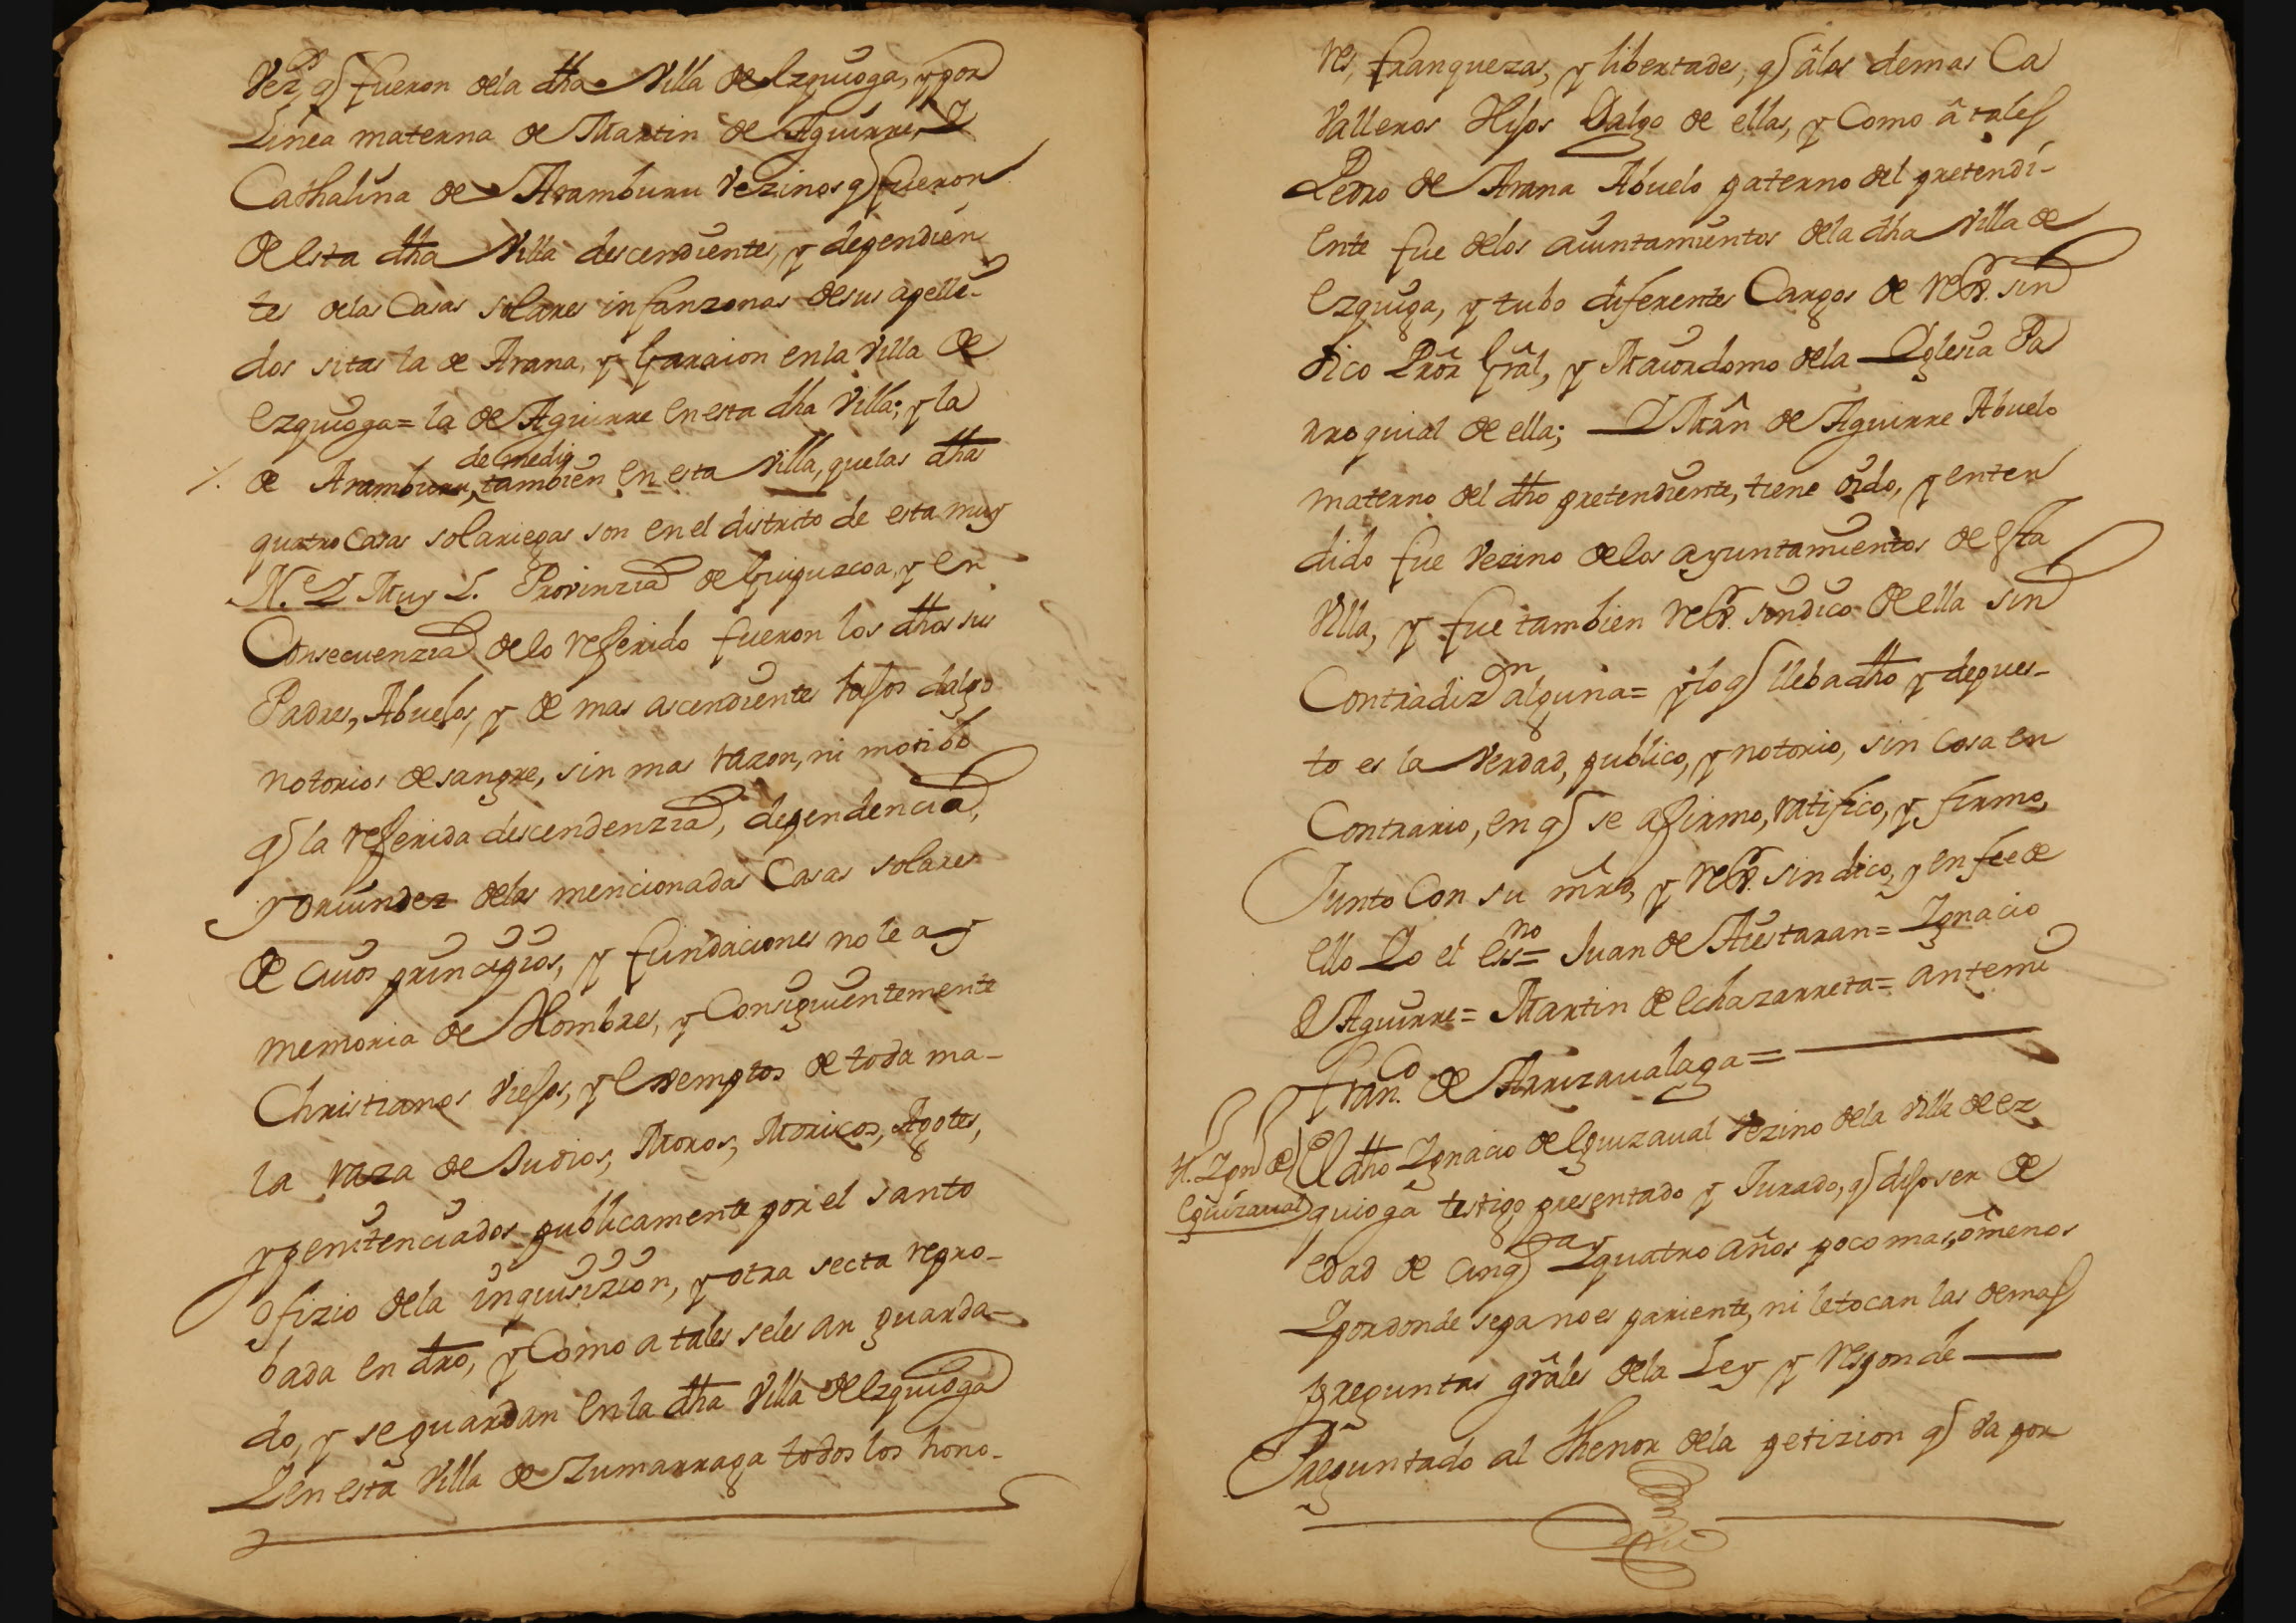 Vez.s q fueron dela dha Villa de Ezquioga, y por
Linea materna de Martin de Aguirre, Y
Cathalina de Aramburu Vezinos q fueron
de esta dha Villa descendientes, y dependien
tes delas Casas solares infanzonas de sus apelli-
dos sitas la de Arana, y Garaion en la Villa de
Ezquioga = la de Aguirre en esta dha Villa; y la
de medio
de Aramburu, tambien en esta Villa, que las dhas
quatro Casas solariegas son en el distrito de esta muy
N.e Y Muy L. Provinzia de Guipuzcoa, y en
Consecuenzia de lo referido fueron los dhos sus
Padres, Abuelos, y de mas ascendientes hijos dalgo
notorios de sangre, sin mas razon, ni motibo
q la referida descendenzia, dependencia,
y oriundez delas mencionadas Casas solares
de cuios principios, y fundaciones no le ay
memoria de Hombres, y Consiguientemente
Christianos Viejos, y Exemptos de toda ma-
la raza de Judios, Moros, Moricos, Agotes,
y penitenciados publicamente por el santo
ofizio dela inquisizion, y otra secta repro-
bada en dro, y Como a tales seles an guarda-
do, y se guardan en la dha Villa de Ezquioga
Y en esta Villa de Zumarraga todos los hono-
res, franquezas, y libertades, q â los demas Ca
Valleros Hijos Dalgo de ellas, y Como â tales
Pedro de Arana Abuelo paterno del pretendi-
ente fue delos aiuntamientos dela dha Villa de
Ezquiga, y tubo diferentes Cargos de Regr. sin
dico Pror Gral, y Maiordomo dela Yglesia Pa
rroquial de ella; Y Mrn de Aguirre Abuelo
materno del dho pretendiente, tiene oido, y enten
dido fue Vezino delos ayuntamientos de esta
Villa, y fue tambien Regr. sindico de ella sin
Contradizn alguna = y lo q lleba dho y depues-
to es la Verdad, publico, y notorio, sin Cosa en
Contrario, en q se afirmo, ratifico, y firmo,
Junto Con su mrd, y Regr. sindico, y en fee de
ello Yo el essno = Juan de Aiestaran = Ygnacio
de Aguirre = Martin de Echazarreta = ante mi
Fran.co de Arrizavalaga =
tt. Ygn.o de
Eguizaval
El dho Ygnacio de Eguizaval Vezino dela Villa de Ez
quioga testigo presentado y Jurado, q dijo ser de
edad de cinqta y quatro años poco mas, ô menos
Y por donde sepa no es pariente, ni le tocan las demas
preguntas grales dela Ley y responde
Preguntado al Thenor dela petizion q va por